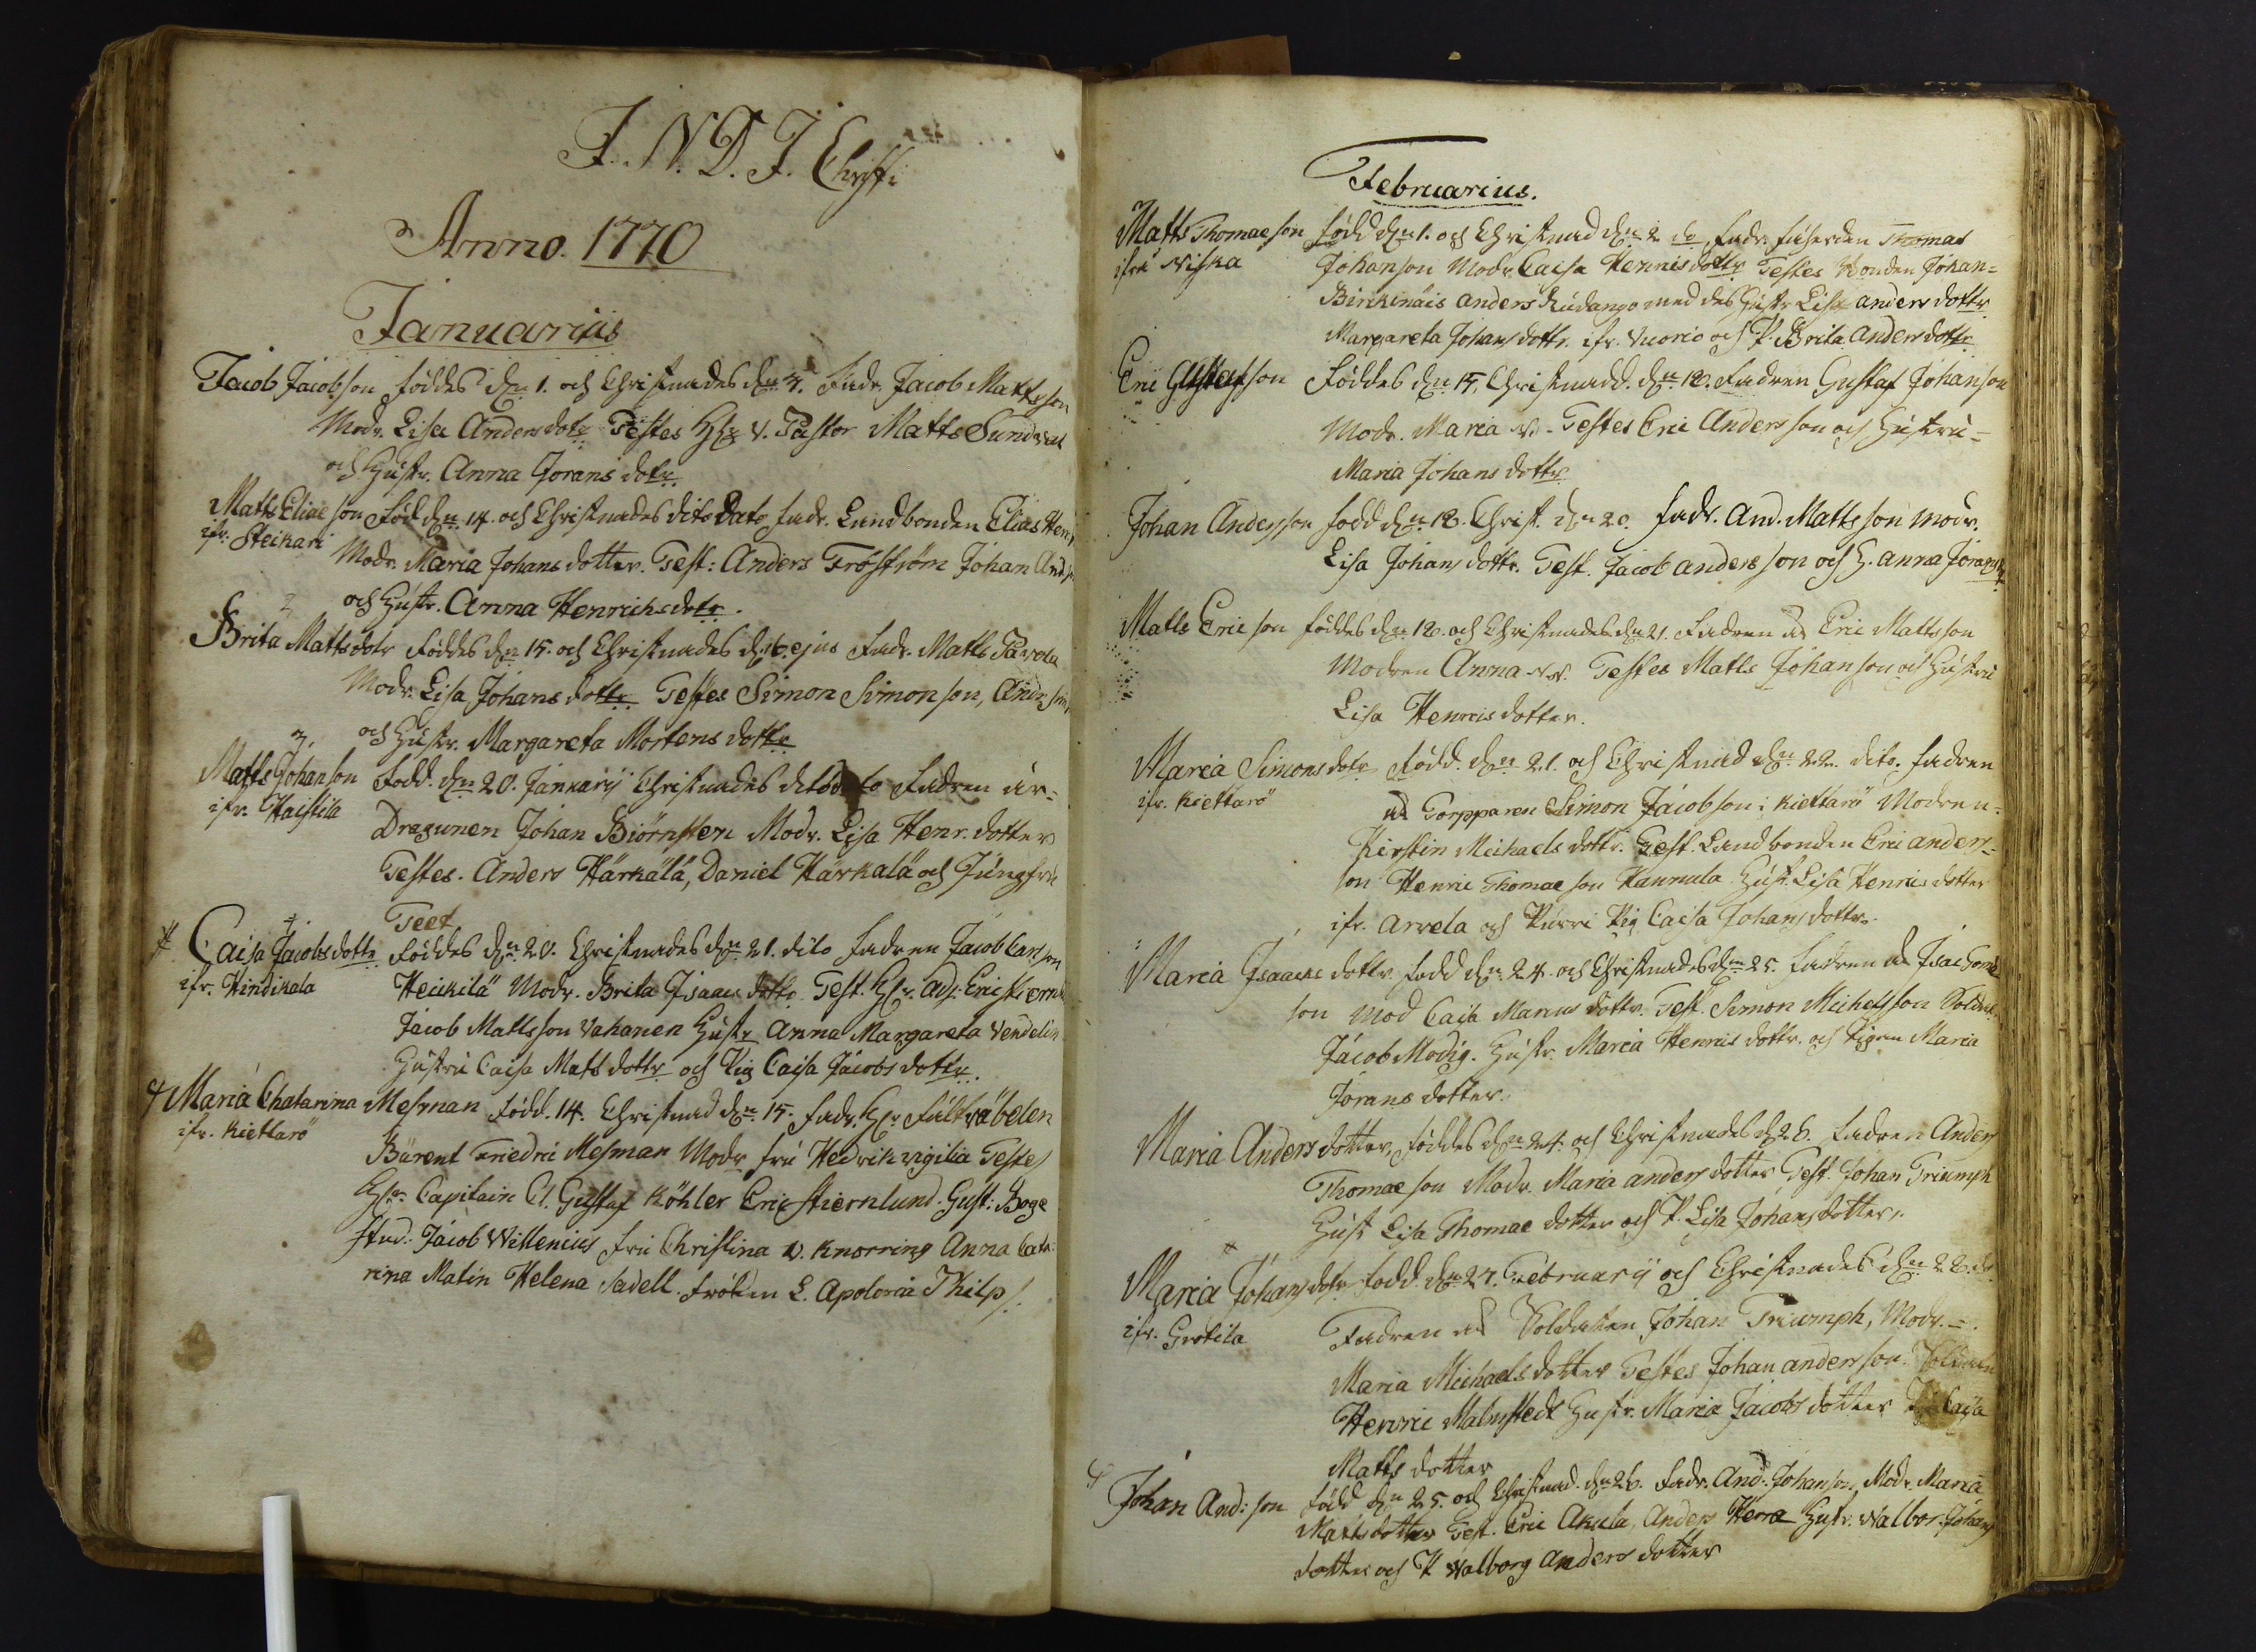 I. N. D. J. Christi
Anno. 1770
Januarius
Jacob Jacobson föddes dn 1. och Christnades dn 3. Fadr. Jacob Mattsson
Modr. Lisa Andersdotr Testes Hr V. Pastor Matts Sundvall
och Hustr. Anna Jorans dotr.
Matts Eliae son Född dn 14. och Christnades dito Dato fadr. Landbonden Elias Henr
ifr. Steikari
Modr. Maria Johans dotter. Test: Anders Froström Johan Ands
och Hustr. Anna Henrichsdotr.
Brita Mattsdotr Föddes dn 15. och Christnades d. 16. ejus Fadr. Matts Pavola
Modr. Lisa Johans dottr. Testes Simon Simonson, Andr.
3. och Hustr. Margareta Mortens dottr
Matts Johanson Född. dn 20. Januarij Christnades dito dato Fadren är
ifr. Haistila
Dragunen Johan Biörnsten Modr. Lisa Henr. dotter
Testes. Anders Härkälä, Daniel Härkalä och Jungfru
Teet
Caisa Jacobs dottr Föddes dn 20. Christnades dn 21. dito Fadren Jacob Carlson
ifr. Hindikala
Heickilä Modr. Brita Isaacs dottr. Test. Hr. Adj. Eric
Jacob Mattsson Vahanen Hustr Anna Margareta Vendelin
Hustru Caisa Matts dottr och Pig Caisa Jacobs dottr.
Maria Chatarina Mesman Född. 14. Christnad dn 15. Fadr. Hr. Fält
ifr. Kiettarö
Bärent Friedric Mesman Modr fru Hedvik vigilia Testes
Hr. Capitain C. Gustaf Köhler Eric Stiernlund. Gust: Boge
Stud: Jacob Willenius fru Christina v. Knorring Anna Cata
rina Malin Helena Sadell. Fröken L. Apolonia Thilp
Februarius.
Matts Thomaeson född dn 1. och Christnad dn 2 do Fadr. Thomas
ifrå Niska
Johanson Modr. Caisa Henrisdottr Testes Bonden Johan
Birkinäis Anders Rudango med des Hustr Lisa anders dottr
Margareta Johans dottr. ifr. Vuorio och P. Brita Anders dottr
Eric Gustafson Föddes dn 15, Christnadd. dn 18. Fadren Gustaf Johanson
Modr. Maria N. - Testes Eric Andersson och Hustru
Maria Johans dottr
Johan Andersson född dn 18. Christ. dn 20. Fadr. And. Matts son Modr.
Lisa Johans dottr. Test. Jacob anders son och H. anna Jorans
Matts Eric son föddes dn 18. och Christnades dn 21. Fadren är Eric Mattsson
Modren Anna N. N. Testes Matts Johanson och Hustru
Lisa Henris dotter.
Maria Simons dotr Född. dn 21. och Christnad dn 22. dito. Fadren
ifr. Kiettarö
är Torpparen Simon Jacobson i Kiettarö Modren
Kirstin Michaels dottr. Test. Landbonden Eric anders
son Henric Thomae son Hannula Hust. Lisa Henris dotter
ifr. Arvela och Purri Pig Caisa Johans dottr.
Maria Isaacs dottr. född dn 24. och Christnades dn 25. Fadren är Isac
son Mod Caisa Marcus dottr. Test. Simon Michelsson Soldat
Jacob Modig. Hustr. Maria Henris dottr. och Pigan Maria
Jorans dotter.
Maria Anders dotter, föddes dn 24. och Christnades d 26. Fadren Anders
Thomae son Modr. Maria anders dotter Test. Johan Triumph
Hust Lisa Thomae dotter och P. Lisa Johans dotter.
Maria Johans dotr Född. dn 27. Februarij och Christnades dn 28. do
ifr. Grotila
Fadren är Soldaten Johan Triumph, Modr.
Maria Michaels dotter Testes Johan andersson. Soldaten
Henric Malmstedt Hustr. Maria Jacobs dotter Pi. Caisa
Matts dotter
Johan And: son född dn 25. och Christnad. dn 26. Fadr. And: Johanson, Modr. Maria
Matts dotter Test. Eric Aksela, Anders Herra Hustr. Walbor. Johans
dotter och P Walborg Anders dotter